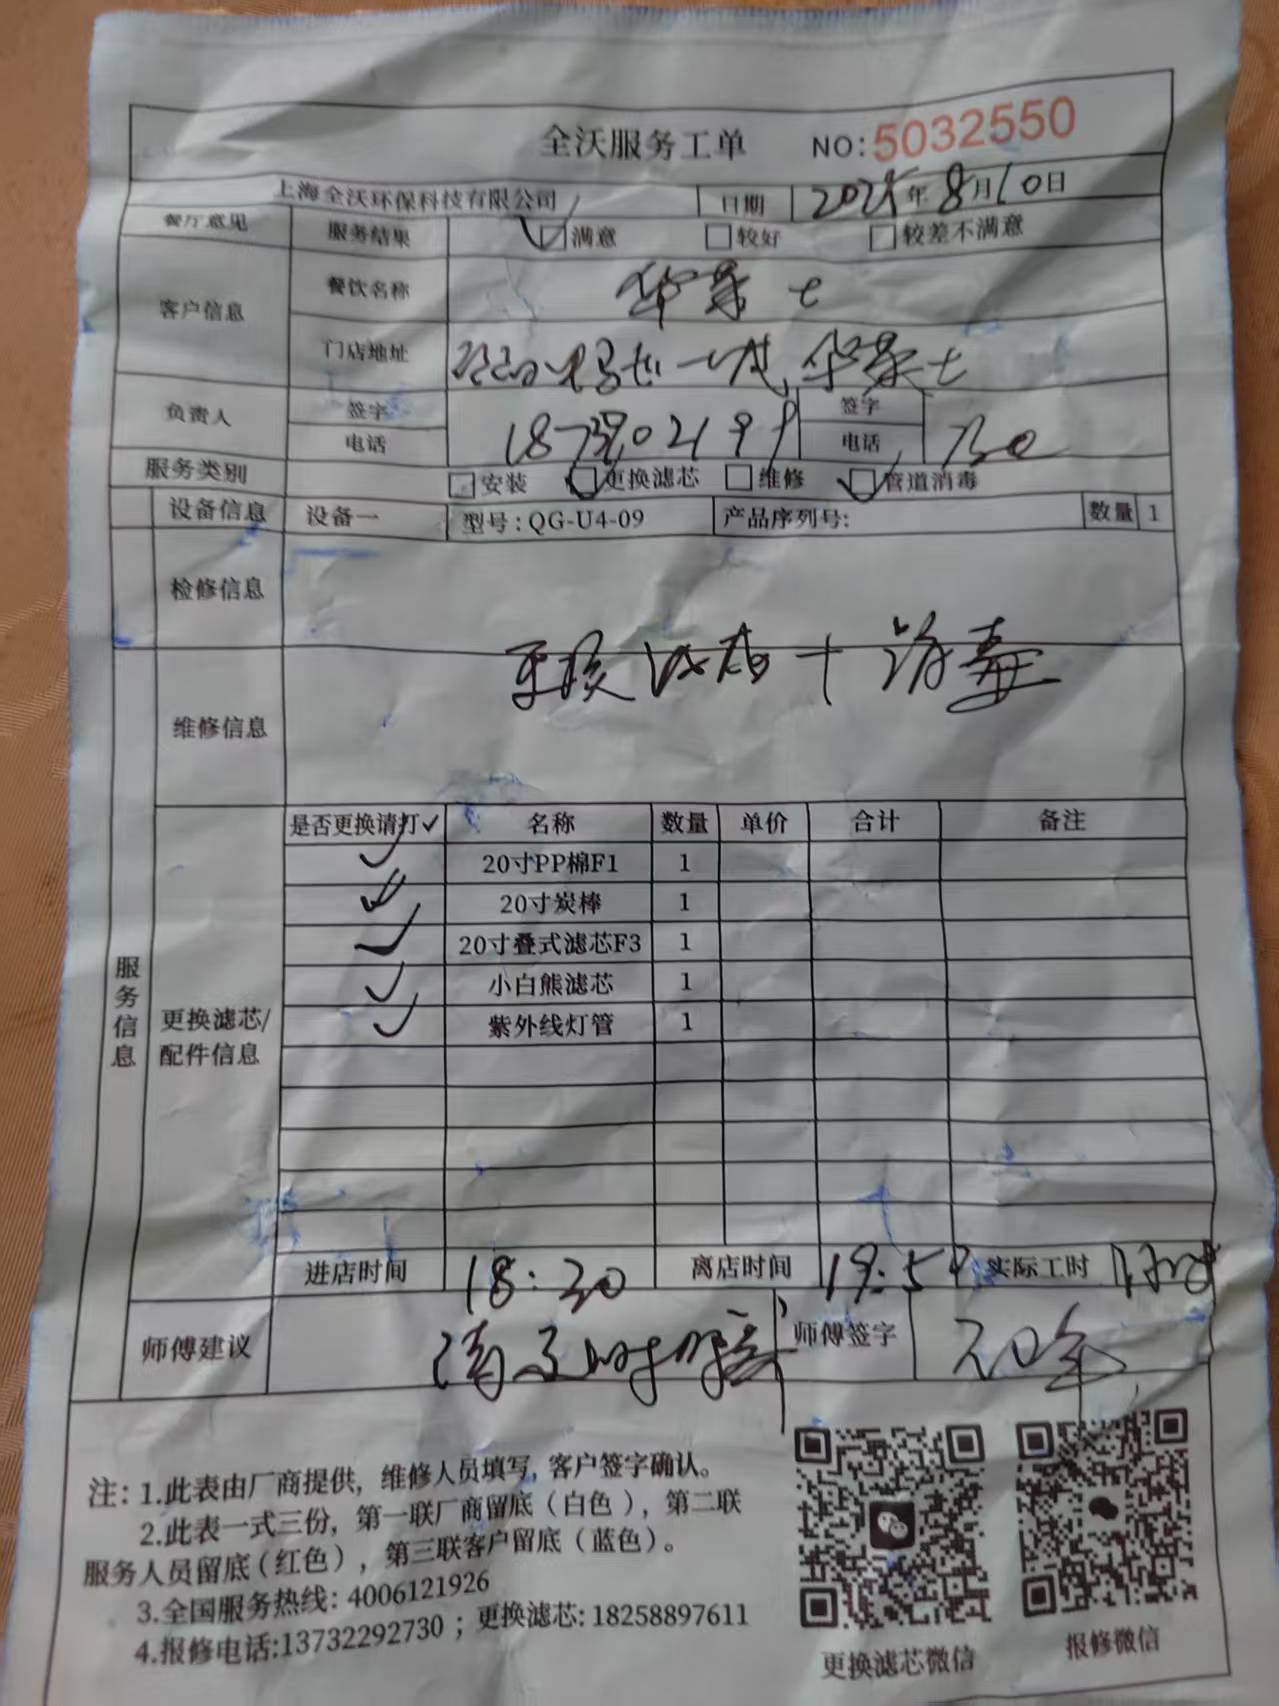 全沃服务工单 NO:5032550
上海全沃环保科技有限公司 日期 2025年8月10日
餐厅意见 服务结果 满意 较好 较差不满意
客户信息 餐饮名称 华莱士
门店地址 一城,华莱士
负责人 签字 签字
电话 电话
服务类别 安装 更换滤芯 维修 管道消毒
设备信息 设备一 型号:QG-U4-09 产品序列号: 数量 1
检修信息
更换滤芯+消毒
维修信息
是否更换请打✓ 名称 数量 单价 合计 备注
✓ 20寸PP棉F1 1
✓ 20寸炭棒 1
✓ 20寸叠式滤芯F3 1
✓ 小白熊滤芯 1
✓ 紫外线灯管 1
服务信息
更换滤芯/
配件信息
进店时间 18:30 离店时间 19:59 实际工时
师傅建议 师傅签字
注: 1.此表由厂商提供, 维修人员填写, 客户签字确认。
2.此表一式三份, 第一联厂商留底(白色), 第二联
服务人员留底(红色), 第三联客户留底(蓝色)。
3.全国服务热线: 4006121926
4.报修电话:13732292730 ; 更换滤芯: 18258897611
更换滤芯微信 报修微信